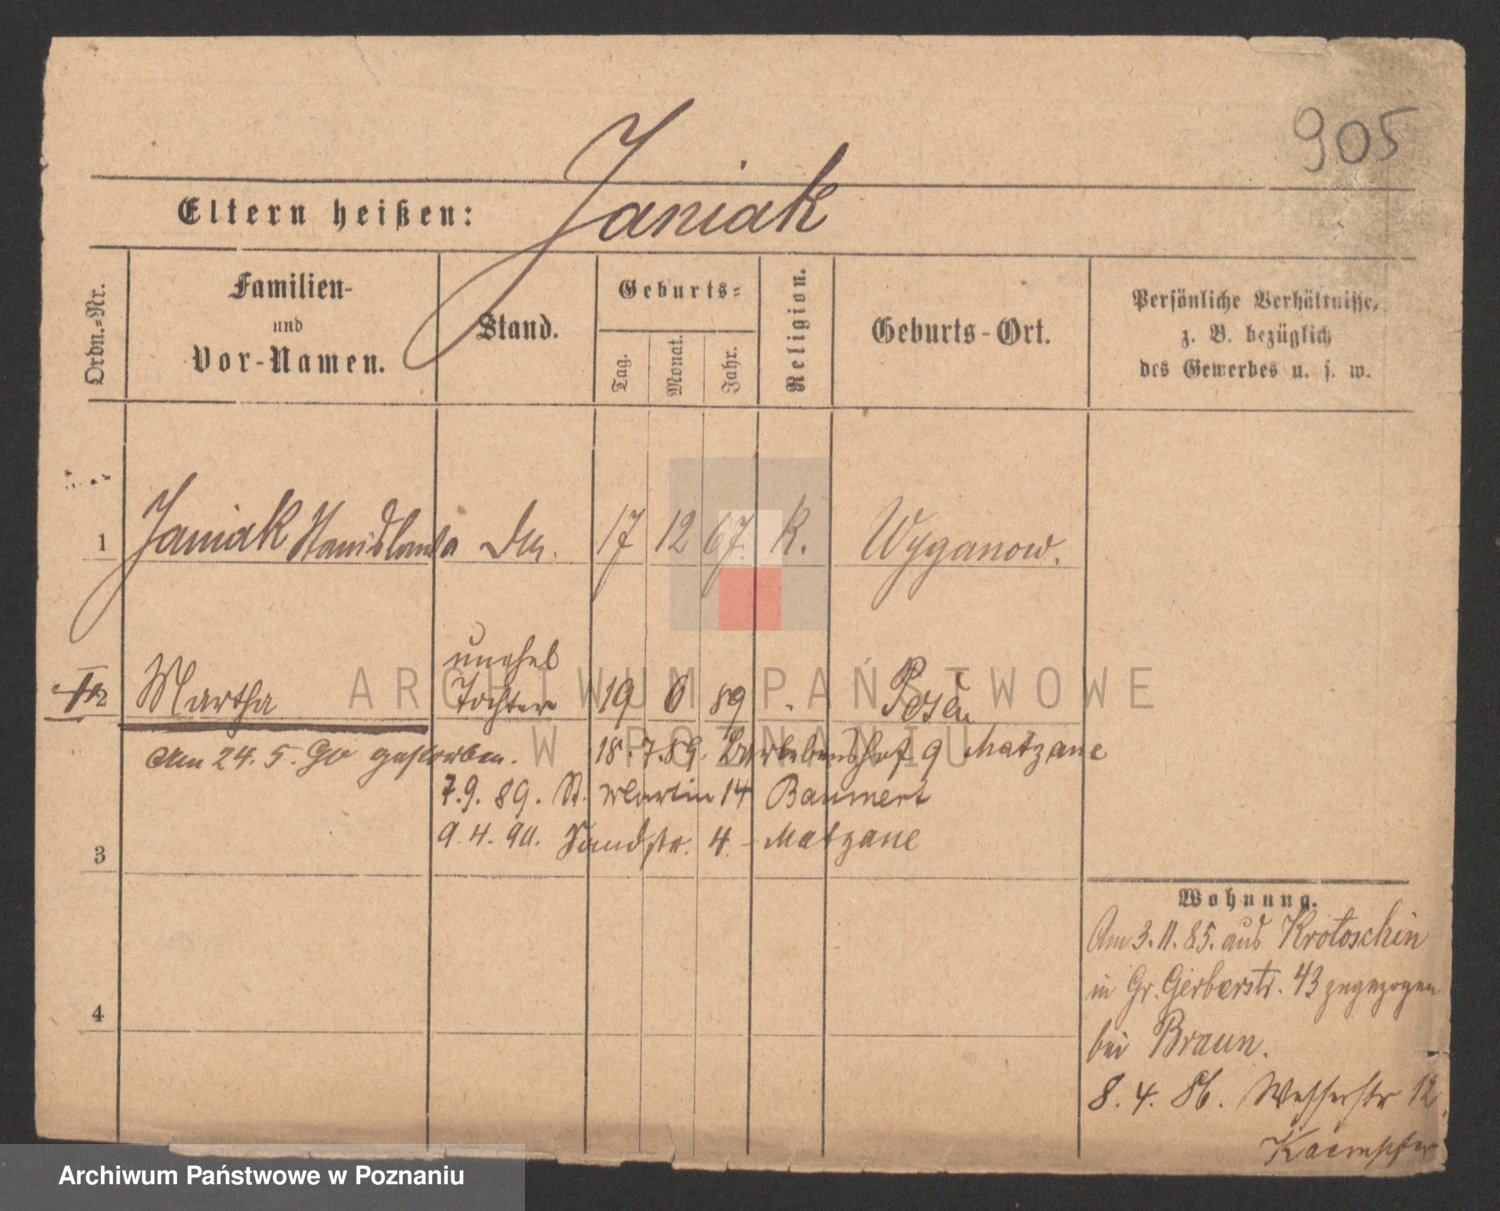 905
Janiak
Eltern heißen:
Ordn.-Nr.
Familien-
und
Vor-Namen.
Stand.
Geburts-
Tag.
Monat.
Jahr.
Religion.
Geburts-Ort.
Persönliche Verhältnisse,
z. B. bezüglich
des Gewerbes u. s. w.
1 Janiak Stanislawa 17 12 67. K. Wyganow.
unehel
Martha Tochter 19 6 89 Posen
Am 24. 5. 90 gestorben. 18. 7. 89. 9 Matzane
7. 9. 89. St. Martin 14 Baumert
9. 4. 90. Sandstr. 4. - Matzane
3
4
Wohnung.
Am 3. 11. 85. aus Krotoschin
in Gr. Gerberstr. 43 zugezogen
bei Braun.
8. 4. 86. 12.
Kaempfer
ARCHIWUM PAŃSTWOWE
W POZNANIU
Archiwum Państwowe w Poznaniu